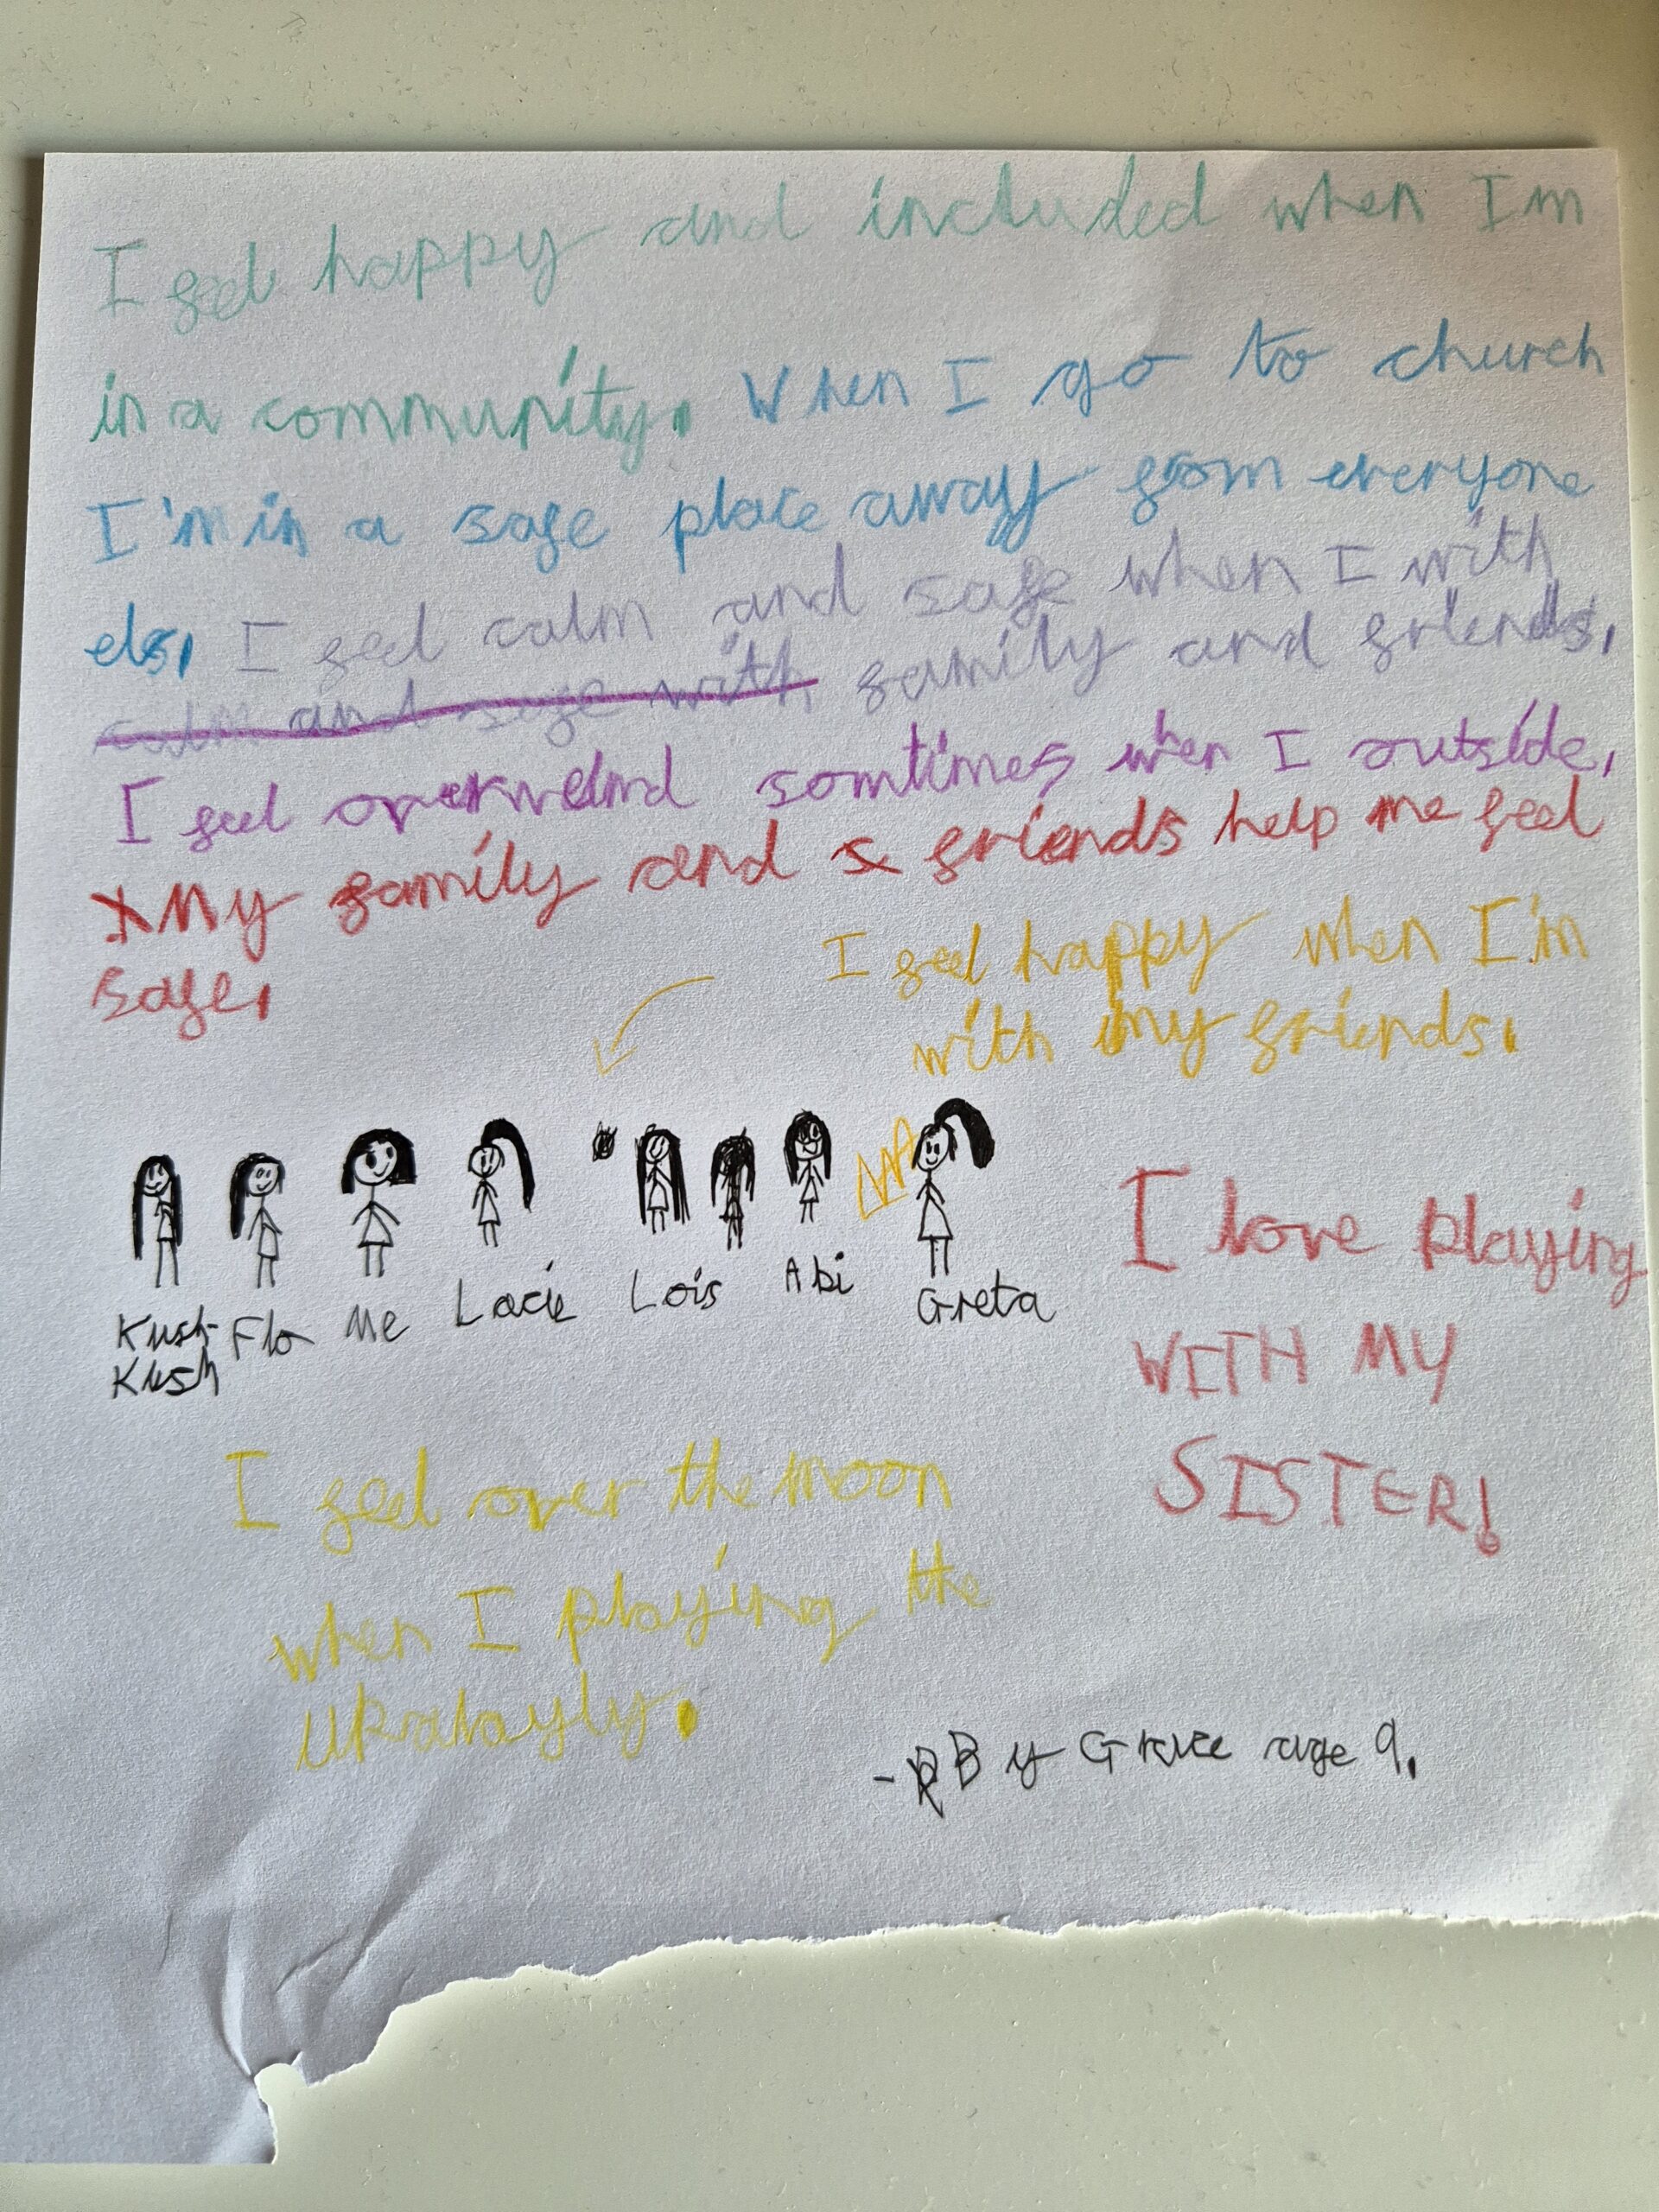 I feel happy and included when Im
in a community. When I go to church
I'm in a safe place away from everyone
els, I feel calm and safe when I with
calm and safe with family and friends,
I feel overwelmd somtimes when I outside,
My family and friends help me feel
safe,
I feel happy when I'm
with my friends.
Kush-Kush
Flo
Me
Lacie
Lois
Abi
Greta
I love playing
WITH MY
SISTER!
I feel over the moon
when I playing the
Ukalayly.
- By Grace age 9,